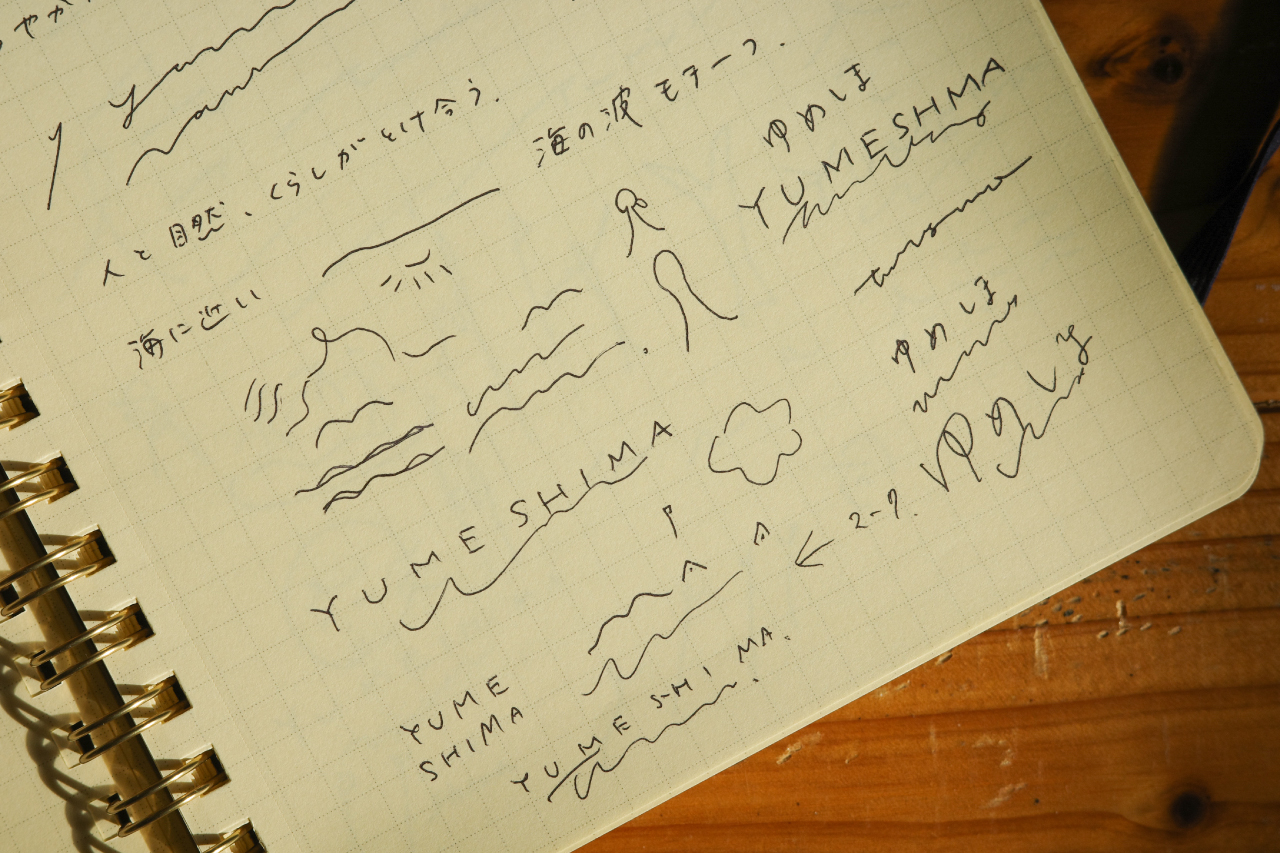 人と自然、くらしがとけ合う.
海の波モチーフ.
ゆめしま
YUMESHMA
海に近い
ゆめしま
ゆめしま
YUME SHIMA
YUME
SHIMA
YUME SHIMA.